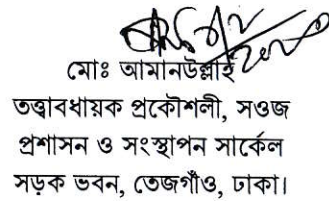 মোঃ আমানউল্লাহ
তত্ত্বাবধায়ক প্রকৌশলী, সওজ
প্রশাসন ও সংস্থাপন সার্কেল
সড়ক ভবন, তেজগাঁও, ঢাকা।